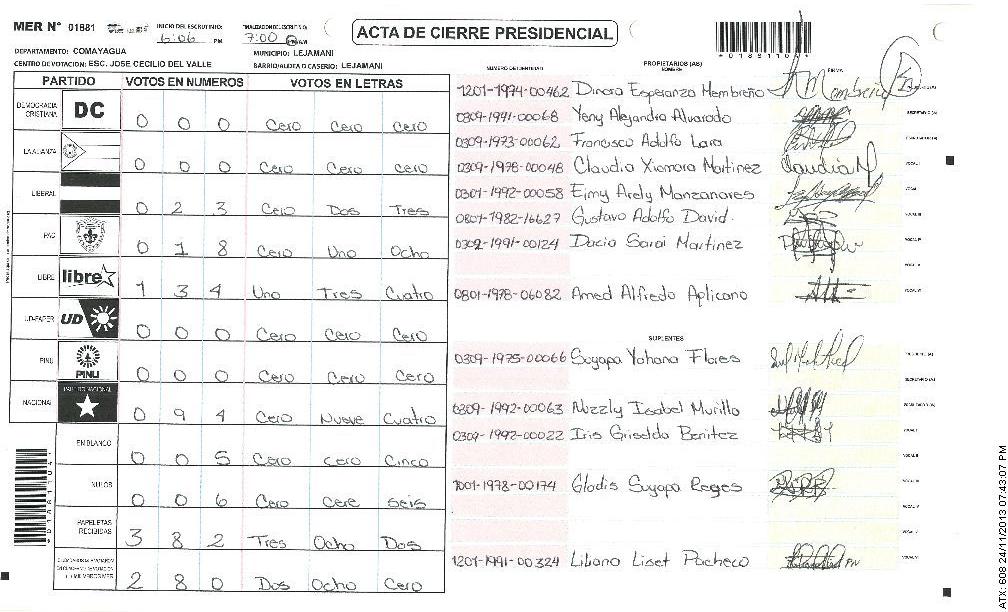 MER N° 01881
INICIO DEL ESCRUTINIO:
6:06 PM
7:00 PM
ACTA DE CIERRE PRESIDENCIAL
DEPARTAMENTO: COMAYAGUA
MUNICIPIO: LEJAMANI
CENTRO DE VOTACION: ESC. JOSE CECILIO DEL VALLE
BARRIO/ALDEA O CASERIO: LEJAMANI
PARTIDO VOTOS EN NUMEROS VOTOS EN LETRAS
DEMOCRACIA CRISTIANA DC 0 0 0 Cero Cero Cero
LA ALIANZA 0 0 0 Cero Cero Cero
LIBERAL 0 2 3 Cero Dos Tres
PAC 0 1 8 Cero Uno Ocho
LIBRE libre 1 3 4 Uno Tres Cuatro
UD-FAPER UD 0 0 0 Cero Cero Cero
PINU PINU 0 0 0 Cero Cero Cero
NACIONAL PARTIDO NACIONAL 0 9 4 Cero Nueve Cuatro
EN BLANCO 0 0 5 Cero cero Cinco
NULOS 0 0 6 Cero Cere seis
PAPELETAS RECIBIDAS 3 8 2 Tres Ocho Dos
2 8 0 Dos Ocho Cero
NUMERO DE IDENTIDAD
PROPIETARIOS (AS)
NOMBRE
FIRMA
1201-1974-00462 Dinora Esperanza Membreño
0309-1991-00068 Yeny Alejandra Alvarado
0309-1973-00062 Francisco Adolfo Lara
0309-1978-00048 Claudia Xiomara Martinez Claudia M
0301-1992-00058 Eimy Arely Manzanares
0801-1982-16627 Gustavo Adolfo David.
0302-1991-00124 Dacia Sarai Martinez
0801-1978-06082 Amed Alfredo Aplicano
SUPLENTES
0309-1975-00066 Suyapa Yohana Flores
0309-1992-00063 Nozzly Isabel Murillo
0309-1992-00022 Iris Griselda Benitez
1001-1978-00174 Glodis Suyapa Reyes
1201-1991-00324 Liliana Liset Pacheco
*01881104*
ATX: 608 24/11/2013 07:43:07 PM